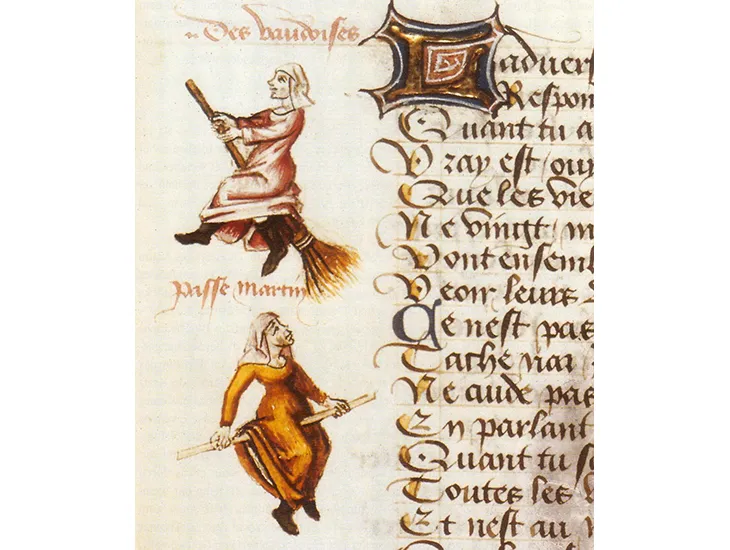 Des vaudoises
passe martin
aduers
Respon
Quant tu a
Vray est ouy
Que les vie
Ne vingt
Vont ensemb
Veoir leurs
Ce nest pas
Tache nai
Ne cuide pas
En parlant
Quant tu
Toutes les
Et nest au